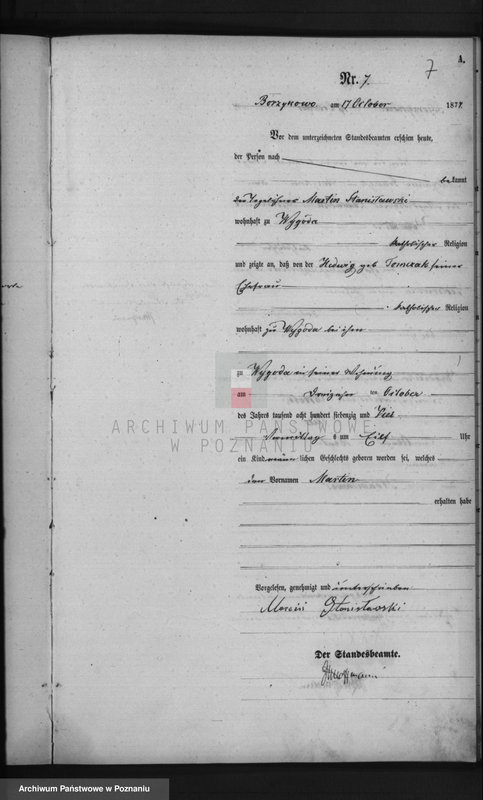 7
A.
Nr. 7.
Borzykowo am 17 October 187
Vor dem unterzeichneten Standesbeamten erschien heute,
der Person nach
bekannt
der Tagelöhner Martin Stanisławski
wohnhaft zu Wygoda
katholischer Religion
und zeigte an, daß von der Hedwig geb Tomczak seiner
Ehefrau
katholischer Religion
wohnhaft zu Wygoda bei ihm
zu Wygoda in seiner Wohnung
am Dreizehn ten October
des Jahres tausend acht hundert siebenzig und
Vormittag s um Eilf Uhr
ein Kind männlichen Geschlechts geboren worden sei, welches
den Vornamen Martin
erhalten habe
Vorgelesen, genehmigt und unterschrieben
Marcin Stanisławski
Der Standesbeamte.
ARCHIWUM PAŃSTWOWE
W POZNANIU
Archiwum Państwowe w Poznaniu